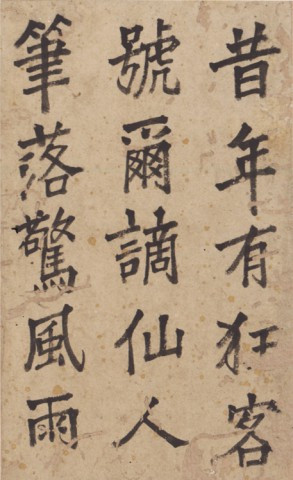 昔年有狂客
號爾謫仙人
筆落驚風雨